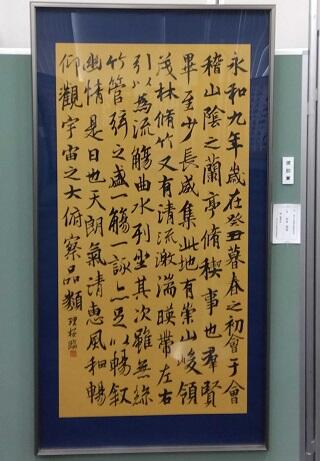 永和九年歳在癸丑暮春之初會于會
稽山陰之蘭亭脩稧事也羣賢
畢至少長咸集此地有崇山峻領
茂林脩竹又有清流激湍暎帶左右
引以為流觴曲水列坐其次雖無絲
竹管弦之盛一觴一詠亦足以暢叙
幽情是日也天朗氣清惠風和暢
仰觀宇宙之大俯察品類